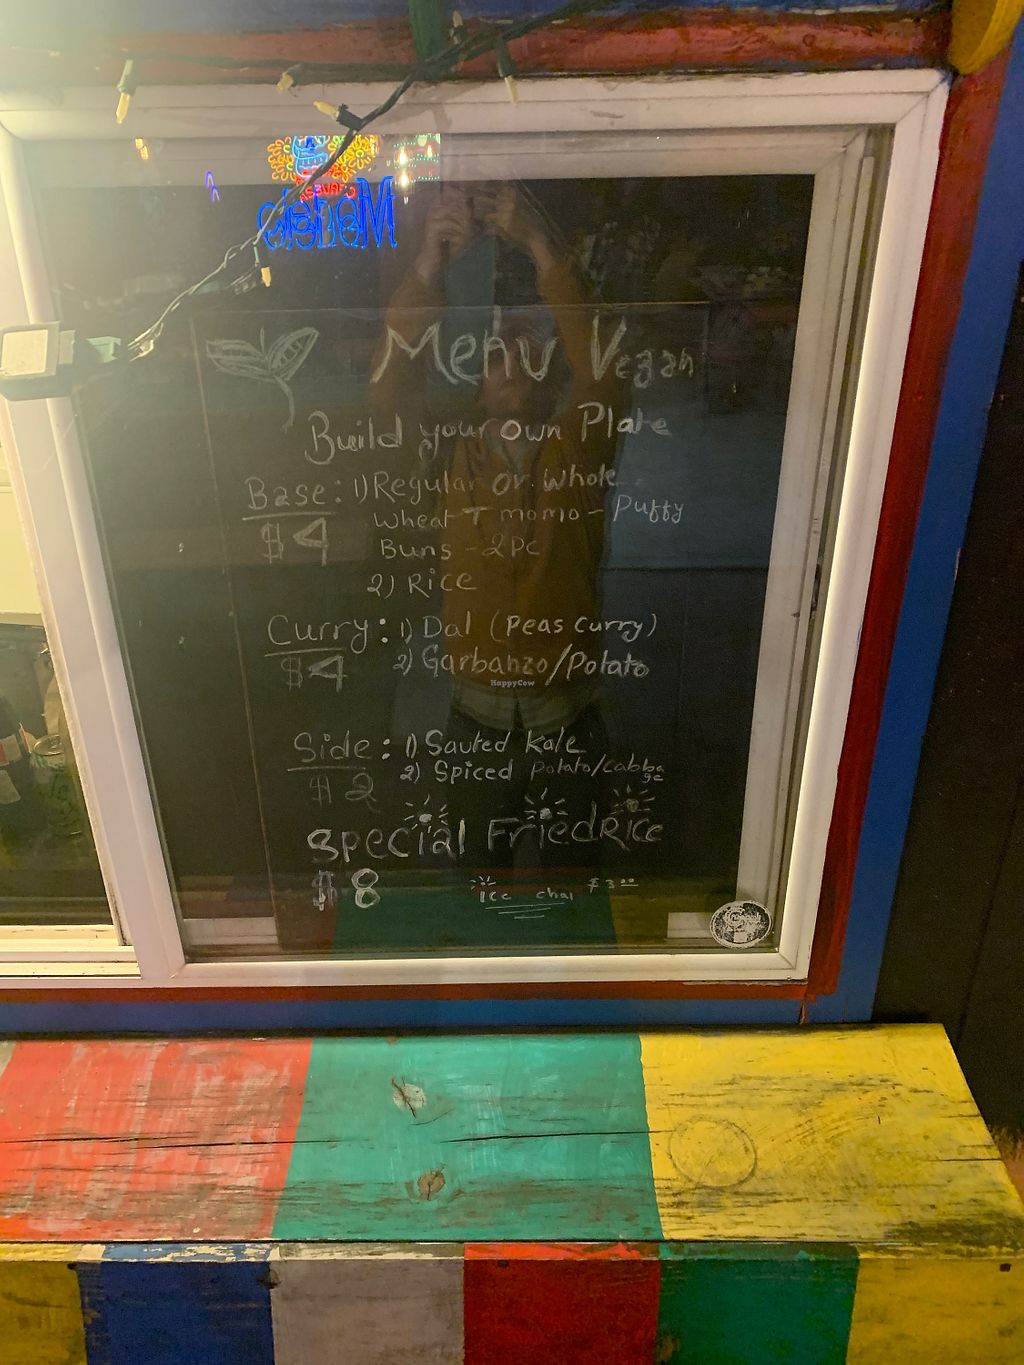 Modelo
Menu Vegan
Build your own Plate
Base: 1) Regular or whole
$4
wheat T momo - Puffy
Buns - 2Pc
2) Rice
Curry: 1) Dal (Peas curry)
$4
2) Garbanzo/Potato
HappyCow
Side: 1) Sauted Kale
$2
2) Spiced Potato/Cabbage
Special Fried Rice
$8
Ice chai $3.00